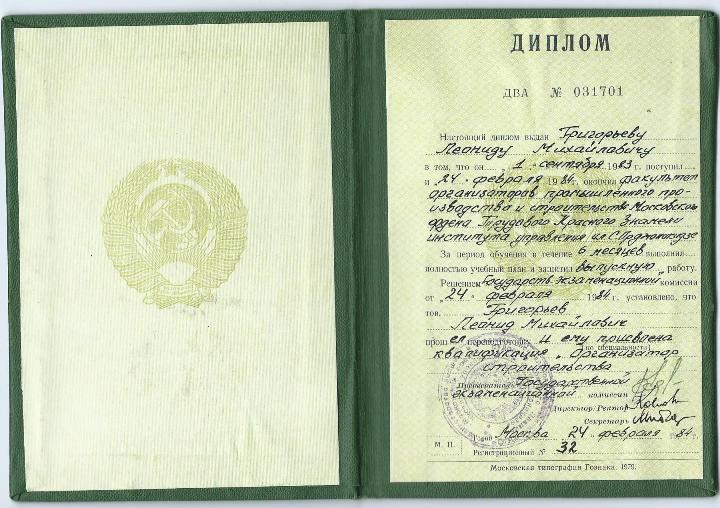 ДИПЛОМ
ДВА № 031701
Настоящий диплом выдан Григорьеву
Леониду Михайлавичу
в том, что он 1 сентября 1983 поступил
и 24 февраля 1984 г. окончил факультет
организаторов промышленного про-
изводства и строительства Московского
ордена Трудового Красного Знамени
института управления им. С. Орджоникидзе
За период обучения в течение 6 месяцев выполнил
полностью учебный план и защитил выпускную работу.
Решением Государств. экзаменационной комиссии
от 24 февраля 1984 г. установлено, что
тов. Григорьев
Леонид Михайлавич
прошел переподготовку и ему присвоена
(по специальности)
квалификация „Организатор
строительства
Председатель Государственной
экзаменационной комиссии
Директор-Ректор
Секретарь
Москва 24 февраля 1984 г.
М. П. Регистрационный № 32
Московская типография Гознака. 1979.